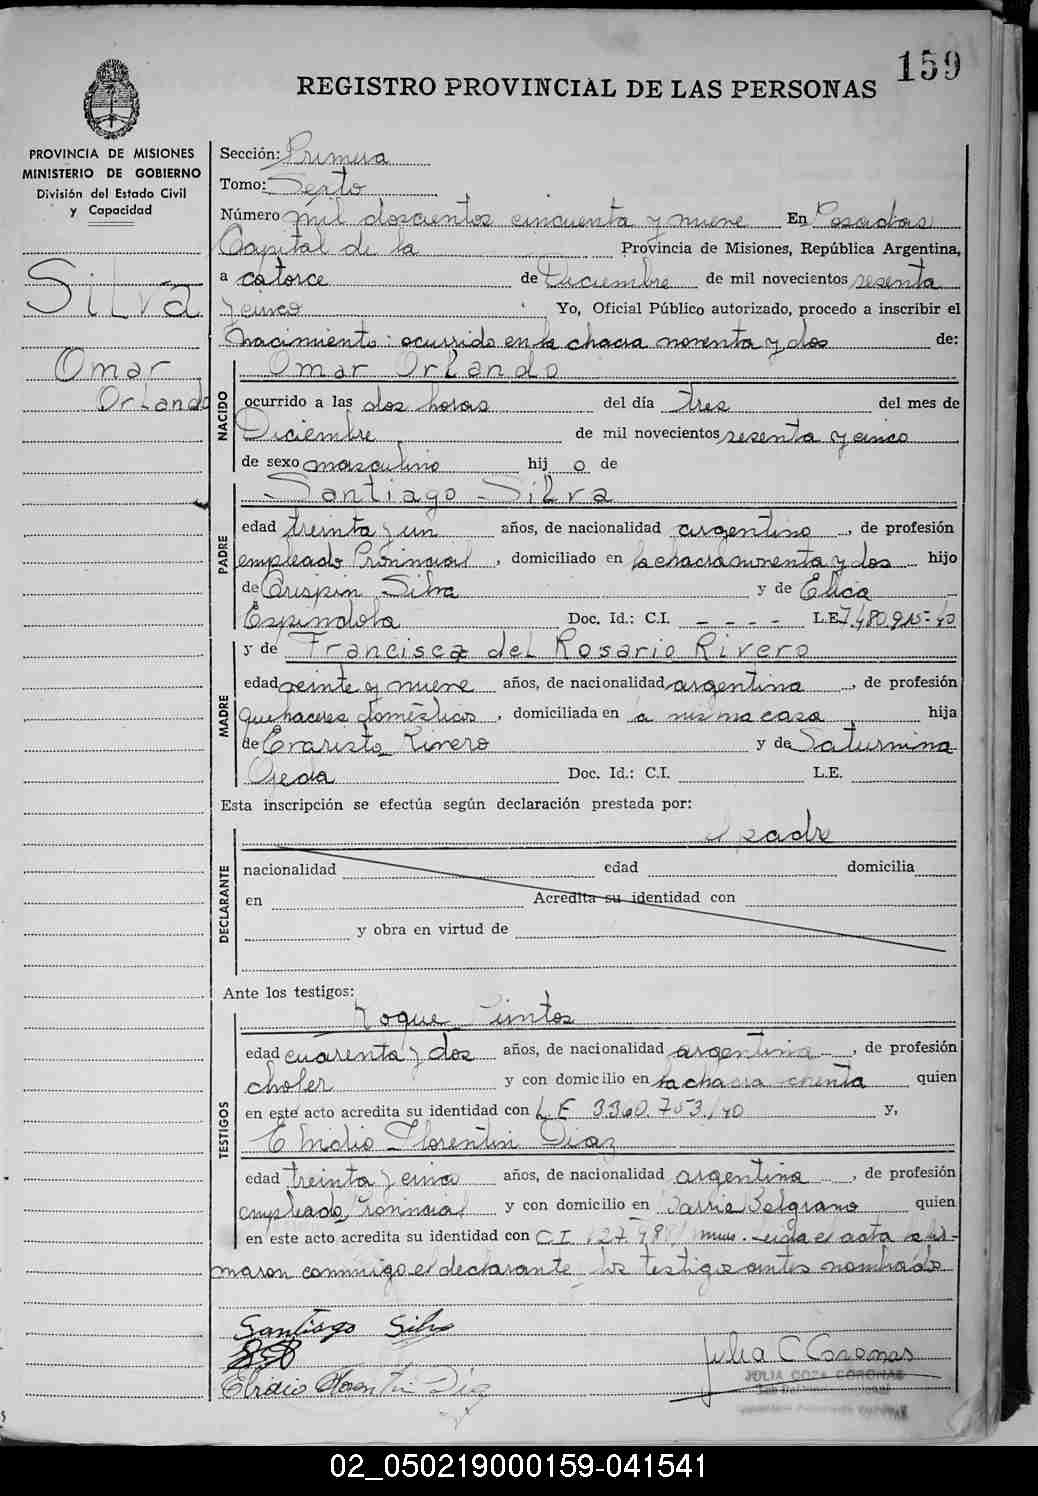 159
REGISTRO PROVINCIAL DE LAS PERSONAS
PROVINCIA DE MISIONES
MINISTERIO DE GOBIERNO
División del Estado Civil
y Capacidad
Silva
Omar
Orlando
Sección: Primera
Tomo: Sexto
Número mil doscientos cincuenta y nueve En Posadas
Capital de la Provincia de Misiones, República Argentina,
a catorce de Diciembre de mil novecientos sesenta
y cinco Yo, Oficial Público autorizado, procedo a inscribir el
Nacimiento: ocurrido en la chacra noventa y dos de:
NACIDO
Omar Orlando
ocurrido a las dos horas del día tres del mes de
Diciembre de mil novecientos sesenta y cinco
de sexo masculino hij o de
PADRE
Santiago Silva
edad treinta y un años, de nacionalidad argentino, de profesión
empleado Provincial, domiciliado en la chacra noventa y dos hijo
de Crispin Silva y de Elica
Espindola Doc. Id.: C.I. - - - - L.E. 7.480.915-40
MADRE
y de Francisca del Rosario Rivero
edad veinte y nueve años, de nacionalidad argentina, de profesión
quehaceres domésticos, domiciliada en la misma casa hija
de Evaristo Rivero y de Saturnina
Ojeda Doc. Id.: C.I. L.E.
Esta inscripción se efectúa según declaración prestada por:
DECLARANTE
el padre
nacionalidad edad domicilia
en Acredita su identidad con
y obra en virtud de
Ante los testigos:
TESTIGOS
Roque Pintos
edad cuarenta y dos años, de nacionalidad argentina, de profesión
chofer y con domicilio en la chacra ochenta quien
en este acto acredita su identidad con L.E 3360.753/40 y,
Elvidio Florentin Diaz
edad treinta y cinco años, de nacionalidad argentina, de profesión
empleado Provincial y con domicilio en Barrio Belgrano quien
en este acto acredita su identidad con C.I. Leida el acta la fir-
maron conmigo el declarante y los testigos antes nombrados
Santiago Silva
Elvidio Florentin Diaz
Julia C Coronas
JULIA COZA CORONAS
02_050219000159-041541